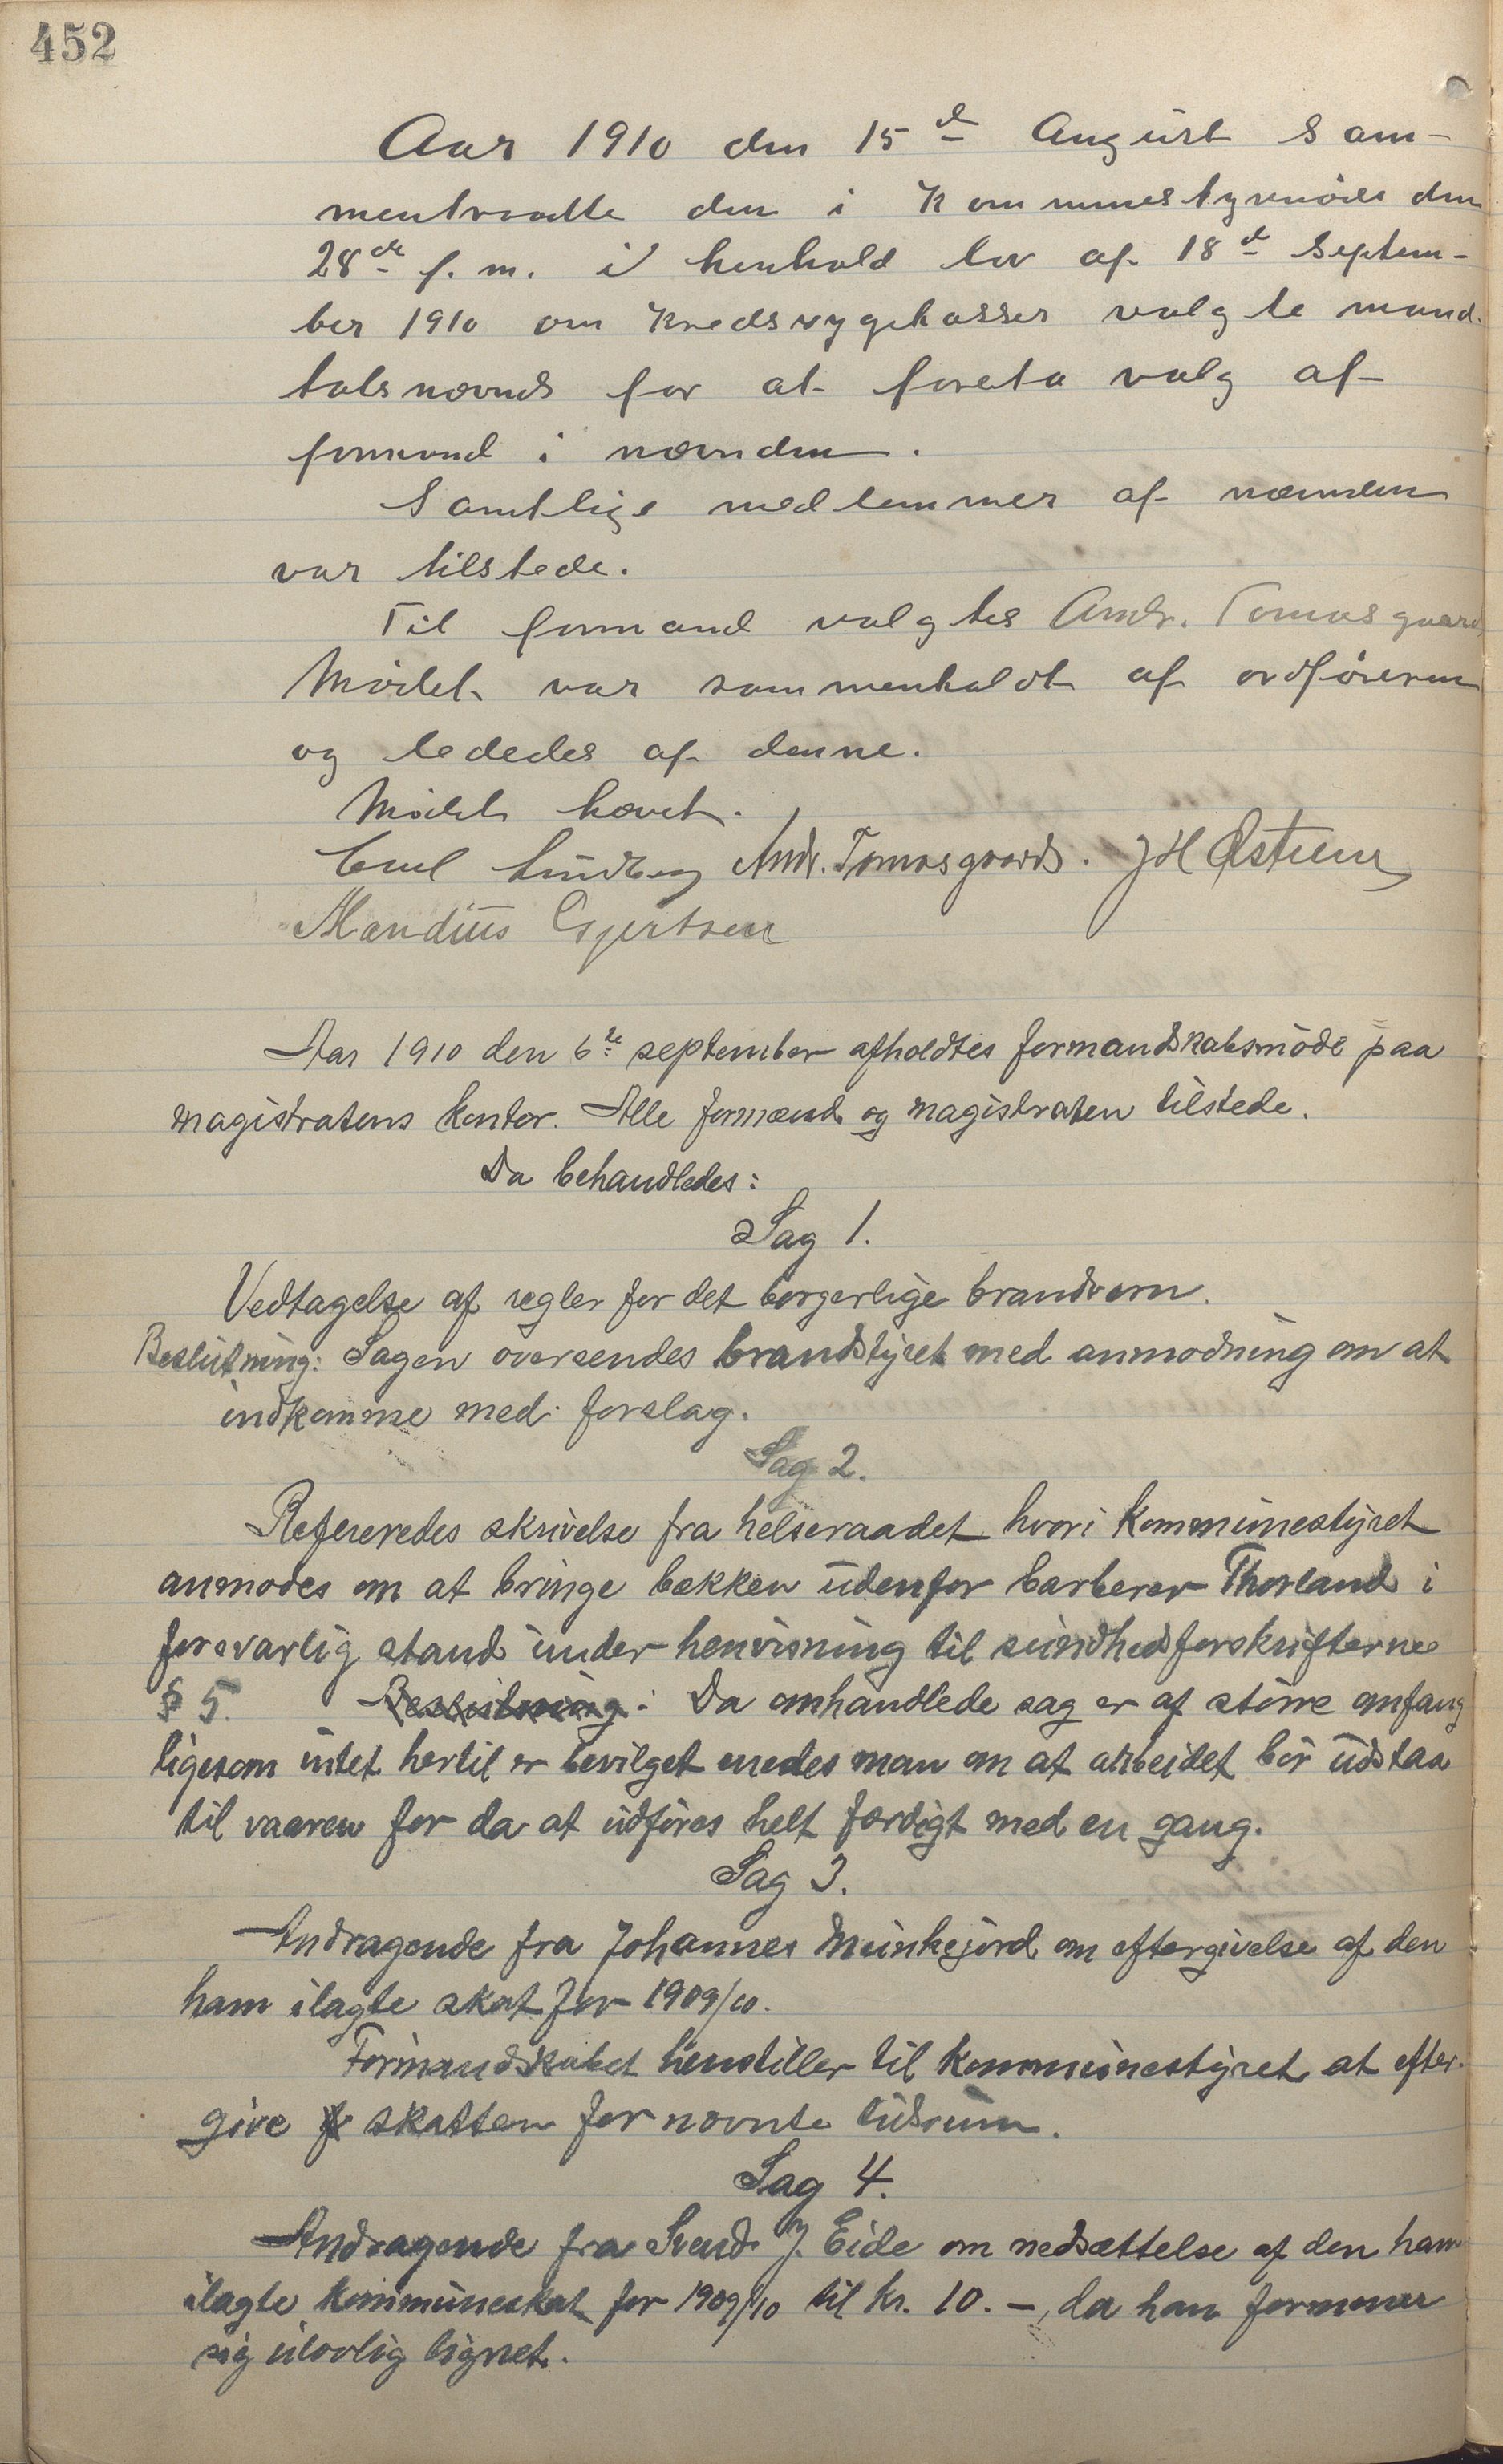 452
Aar 1910 den 15de August sam-
mentraadte den i Kommunestyremöde den
28de f. m. i henhold lov af 18de Septem-
ber 1910 om Kredssygekasser valgte mand-
talsnævnd for at foreta valg af
formand i nævnden.
Samtlige medlemmer af nævnden
var tilstede.
Til formand valgtes Andr. Tomasgaard
Mødet var sammenkaldt af ordföreren
og lededes af denne.
Mödet hævet.
Emil Lindberg Andr. Tomasgaard. J H Östrem
Mandius Gjertsen
Aar 1910 den 6te september afholdtes formandskabsmöde paa
magistratens kontor. Alle formænd og magistraten tilstede.
Da behandledes:
Sag 1.
Vedtagelse af regler for det borgerlige brandvern.
Beslutning: Sagen oversendes brandstyret med anmodning om at
indkomme med forslag.
Sag 2.
Refereredes skrivelse fra helseraadet hvori kommunestyret
anmodes om at bringe bekken udenfor barberer Thorland i
forsvarlig stand under henvisning til sundhedsforskrifterne
§ 5. Beslutning: Da omhandlede sag er af större omfang
ligesom intet hertil er bevilget enedes man om at arbeidet bör udstaa
til vaaren for da at udföres helt færdigt med en gang.
Sag 3.
Andragende fra Johannes Munkejord om eftergivelse af den
ham ilagte skat for 1909/10.
Formandskabet henstiller til kommunestyret at efter-
give skatten for nævnte tidsrum.
Sag 4.
Andragende fra Svend J. Eide om nedsættelse af den ham
ilagte kommuneskat for 1909/10 til kr. 10.-, da han formener
sig ulovlig lignet.